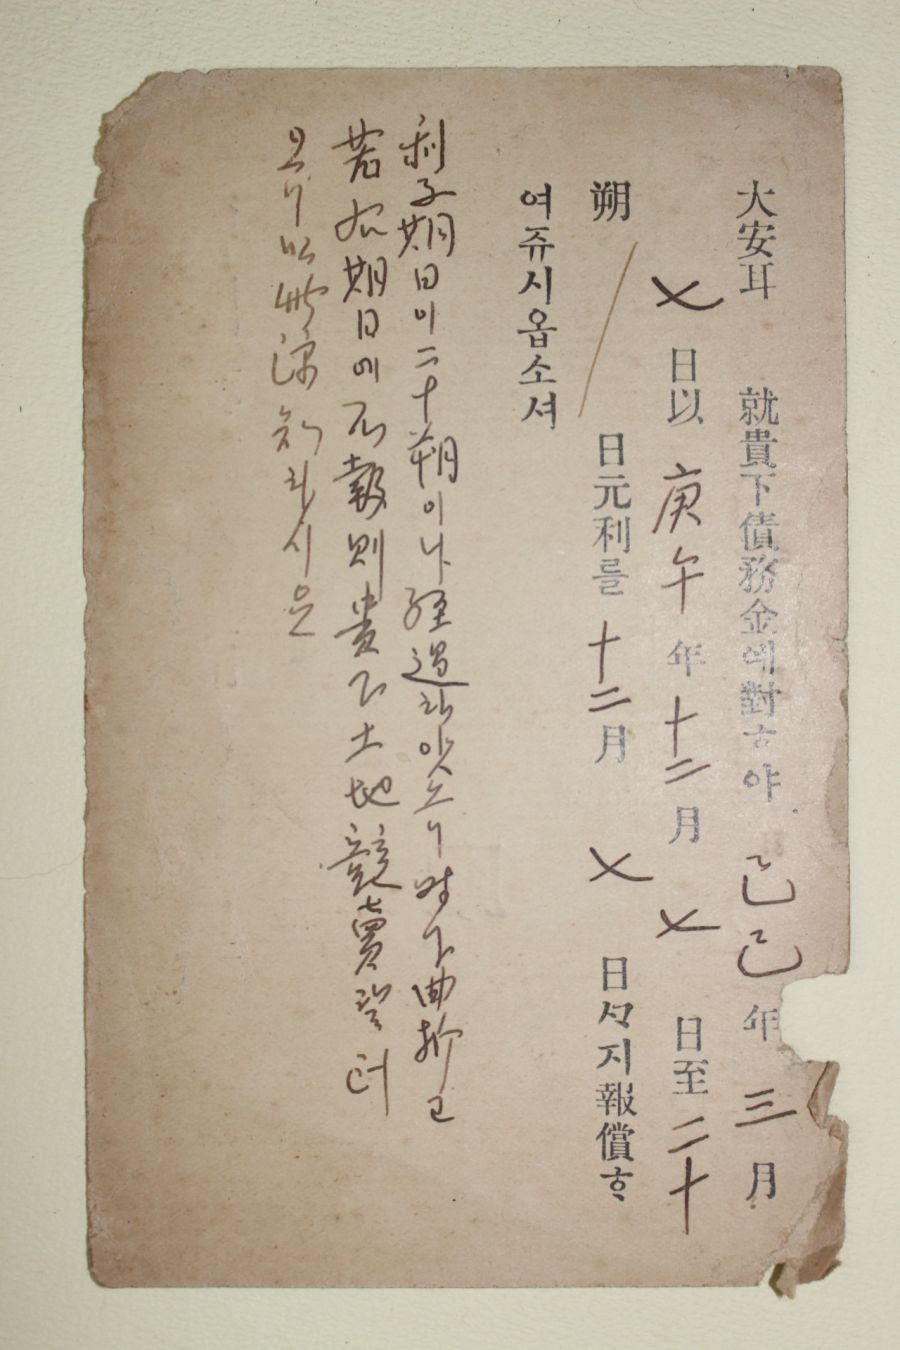 大安耳 就貴下債務金에對ㅎ야 己巳年 三月
㐅日以 庚午年 十二月 㐅日至 二十
朔 日元利를 十二月 㐅日ᄭᆞ지報償ᄒᆞ
여쥬시옵소셔
利子期日이二十朔이나經過하얏스니 下曲折고
若 期日에不報則貴下土地競賣할터
오니以此諒知하시옵